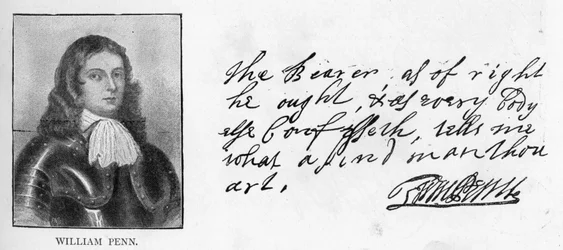 WILLIAM PENN.
The Bearer as of right
he ought, & as every body
else Confesseth, tells me
what a kind man thou
art.